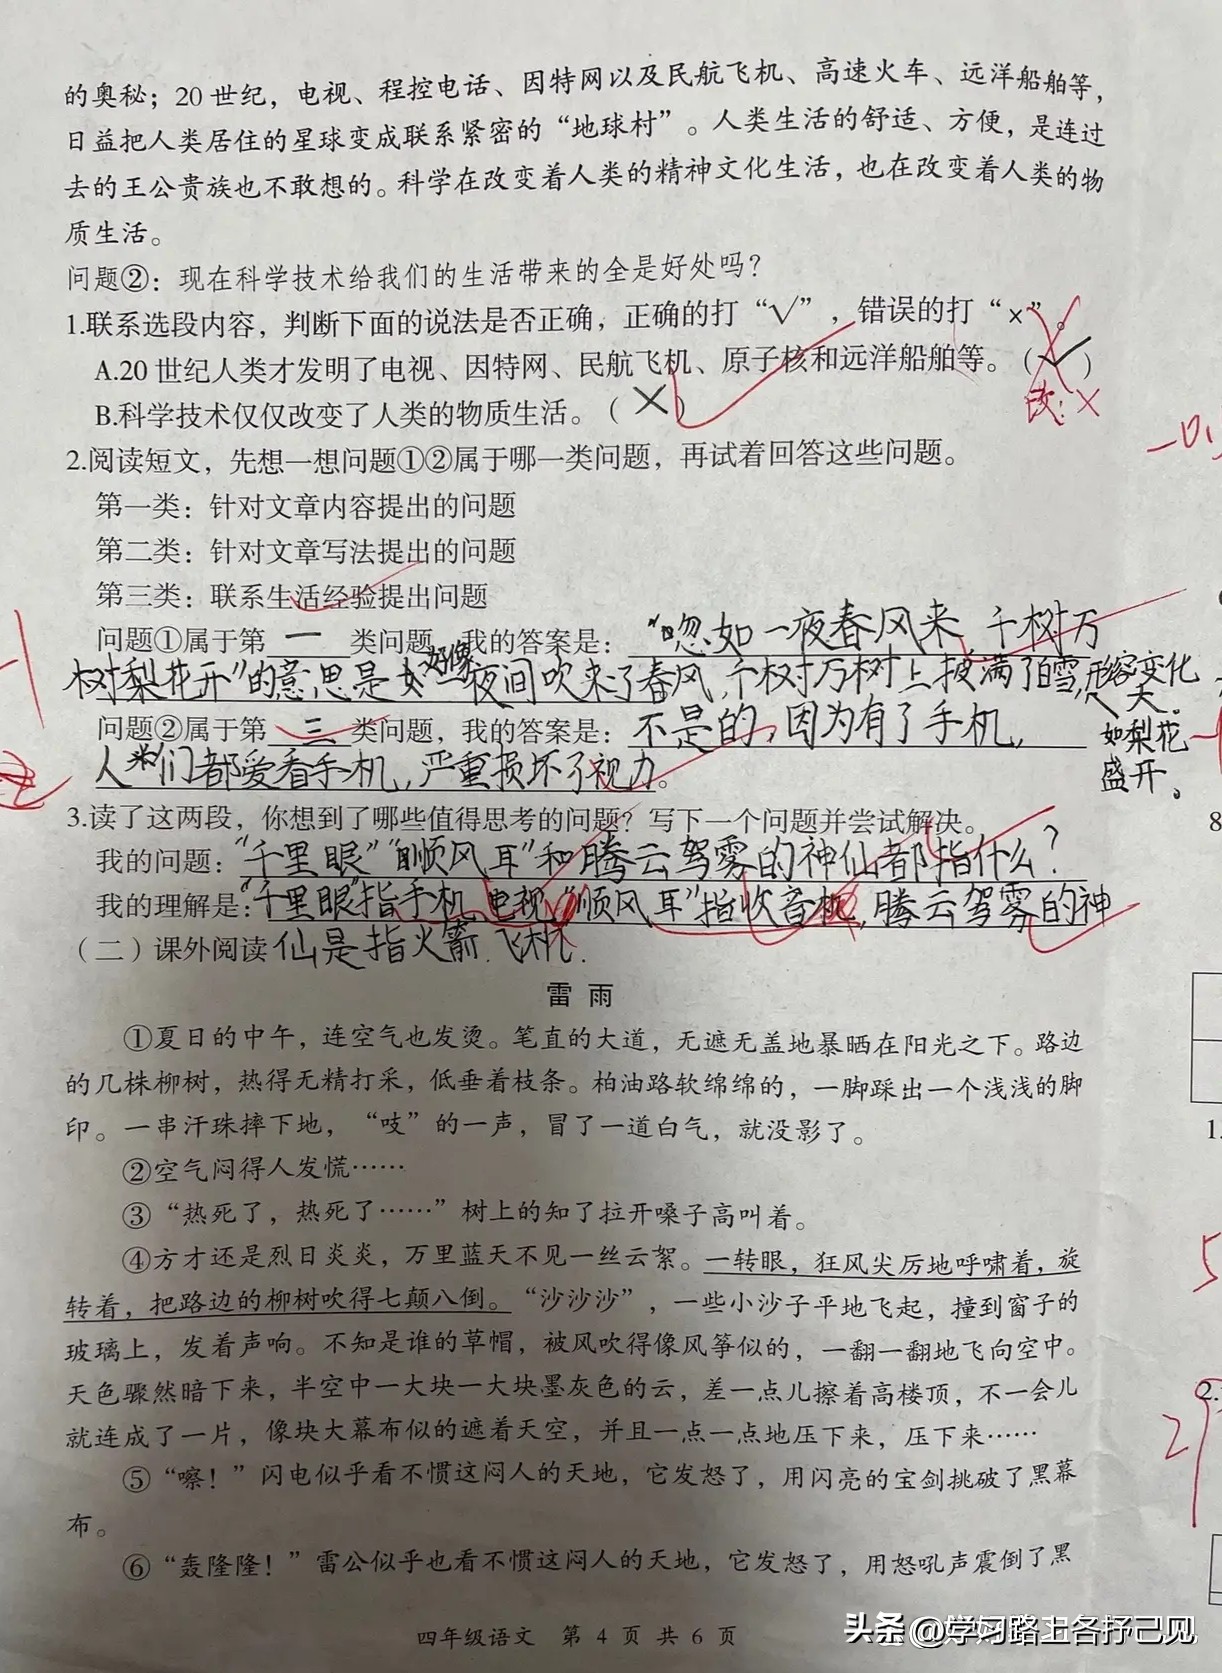 的奥秘；20 世纪，电视、程控电话、因特网以及民航飞机、高速火车、远洋船舶等，
日益把人类居住的星球变成联系紧密的“地球村”。人类生活的舒适、方便，是连过
去的王公贵族也不敢想的。科学在改变着人类的精神文化生活，也在改变着人类的物
质生活。
问题②：现在科学技术给我们的生活带来的全是好处吗？
1.联系选段内容，判断下面的说法是否正确，正确的打“√”，错误的打“×”。
A.20 世纪人类才发明了电视、因特网、民航飞机、原子核和远洋船舶等。（✓）
改：×
B.科学技术仅仅改变了人类的物质生活。（×）
2.阅读短文，先想一想问题①②属于哪一类问题，再试着回答这些问题。
第一类：针对文章内容提出的问题
第二类：针对文章写法提出的问题
第三类：联系生活经验提出问题
问题①属于第一类问题，我的答案是：“忽如一夜春风来 千树万
树梨花开”的意思是好像一夜间吹来了春风，千树万树上披满了白雪，形容变化
大。
如梨花
盛开。
问题②属于第三类问题，我的答案是：不是的，因为有了手机，
人类们都爱看手机，严重损坏了视力。
3.读了这两段，你想到了哪些值得思考的问题？写下一个问题并尝试解决。
我的问题：“千里眼”“顺风耳”和腾云驾雾的神仙都指什么？
我的理解是：“千里眼”指手机、电视，“顺风耳”指收音机，腾云驾雾的神
仙是指火箭、飞机.
（二）课外阅读
雷 雨
①夏日的中午，连空气也发烫。笔直的大道，无遮无盖地暴晒在阳光之下。路边
的几株柳树，热得无精打采，低垂着枝条。柏油路软绵绵的，一脚踩出一个浅浅的脚
印。一串汗珠摔下地，“吱”的一声，冒了一道白气，就没影了。
②空气闷得人发慌……
③“热死了，热死了……”树上的知了拉开嗓子高叫着。
④方才还是烈日炎炎，万里蓝天不见一丝云絮。一转眼，狂风尖厉地呼啸着，旋
转着，把路边的柳树吹得七颠八倒。“沙沙沙”，一些小沙子平地飞起，撞到窗子的
玻璃上，发着声响。不知是谁的草帽，被风吹得像风筝似的，一翻一翻地飞向空中。
天色骤然暗下来，半空中一大块一大块墨灰色的云，差一点儿擦着高楼顶，不一会儿
就连成了一片，像块大幕布似的遮着天空，并且一点一点地压下来，压下来……
⑤“嚓！”闪电似乎看不惯这闷人的天地，它发怒了，用闪亮的宝剑挑破了黑幕
布。
⑥“轰隆隆！”雷公似乎也看不惯这闷人的天地，它发怒了，用怒吼声震倒了黑
四年级语文 第 4 页 共 6 页
头条 @学习路上各抒己见